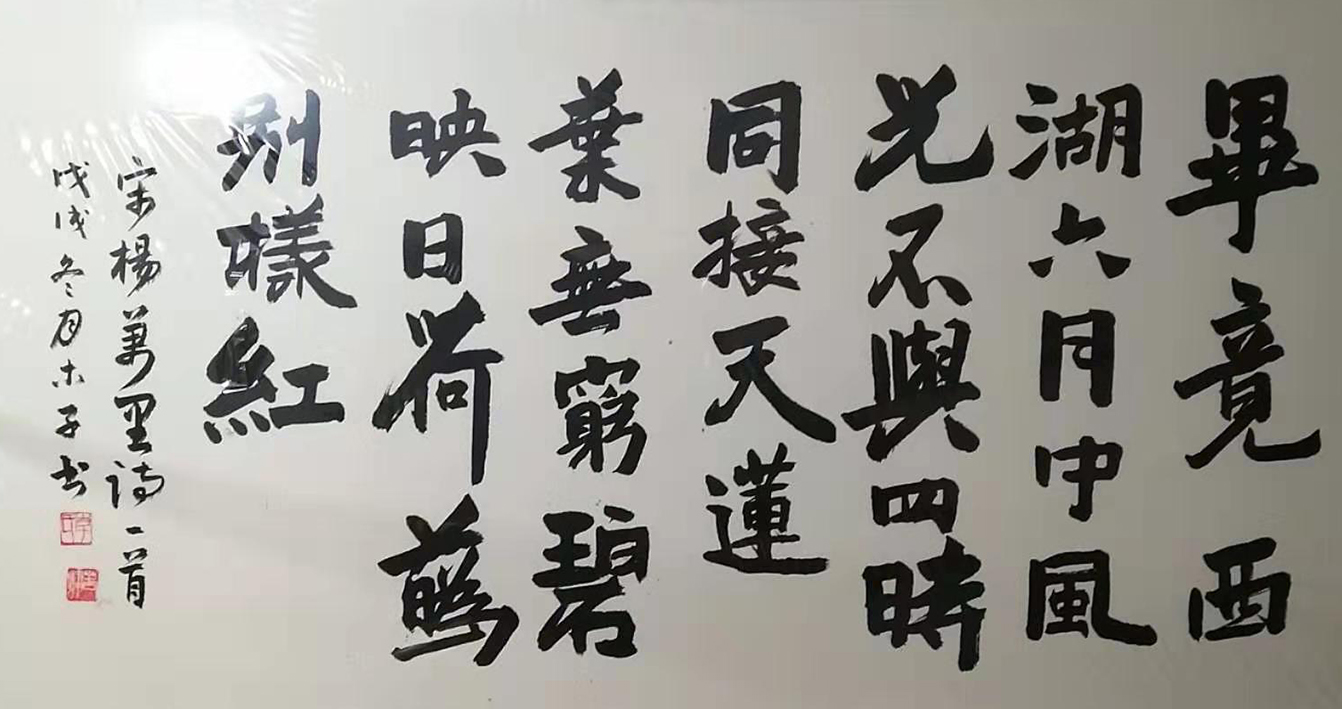 畢竟西
湖六月中風
光不與四時
同接天蓮
葉無窮碧
映日荷蘤
别樣紅
宋楊萬里詩一首
戊戌冬月木子书